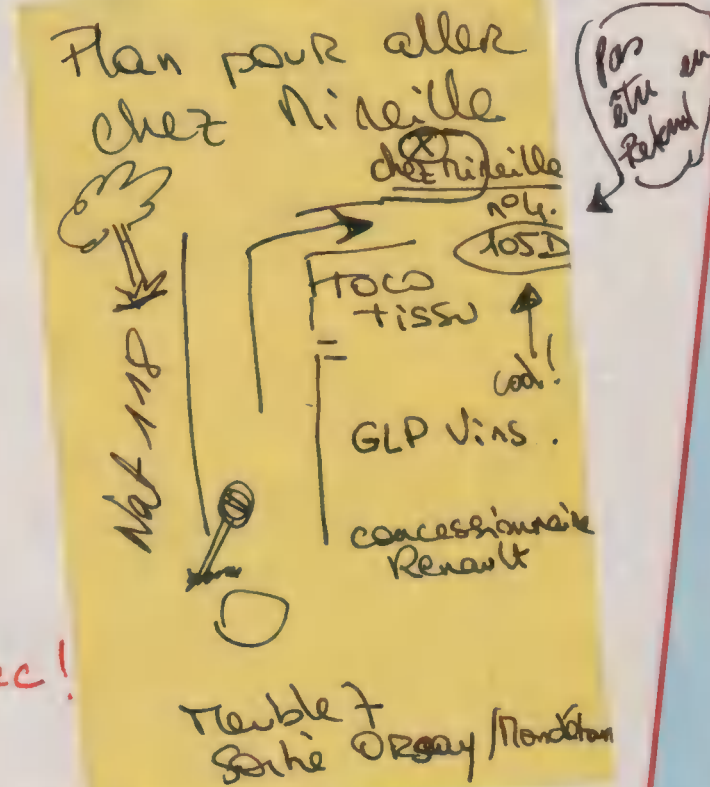 Plan pour aller
chez Mireille
Pas
être en
Retard
X
chez Mireille
n°4.
105D
Toco
tissu
cod!
Nat 118
GLP Vins.
concessionnaire
Renault
Meuble 7
Sortie ORSAY/Mondétour